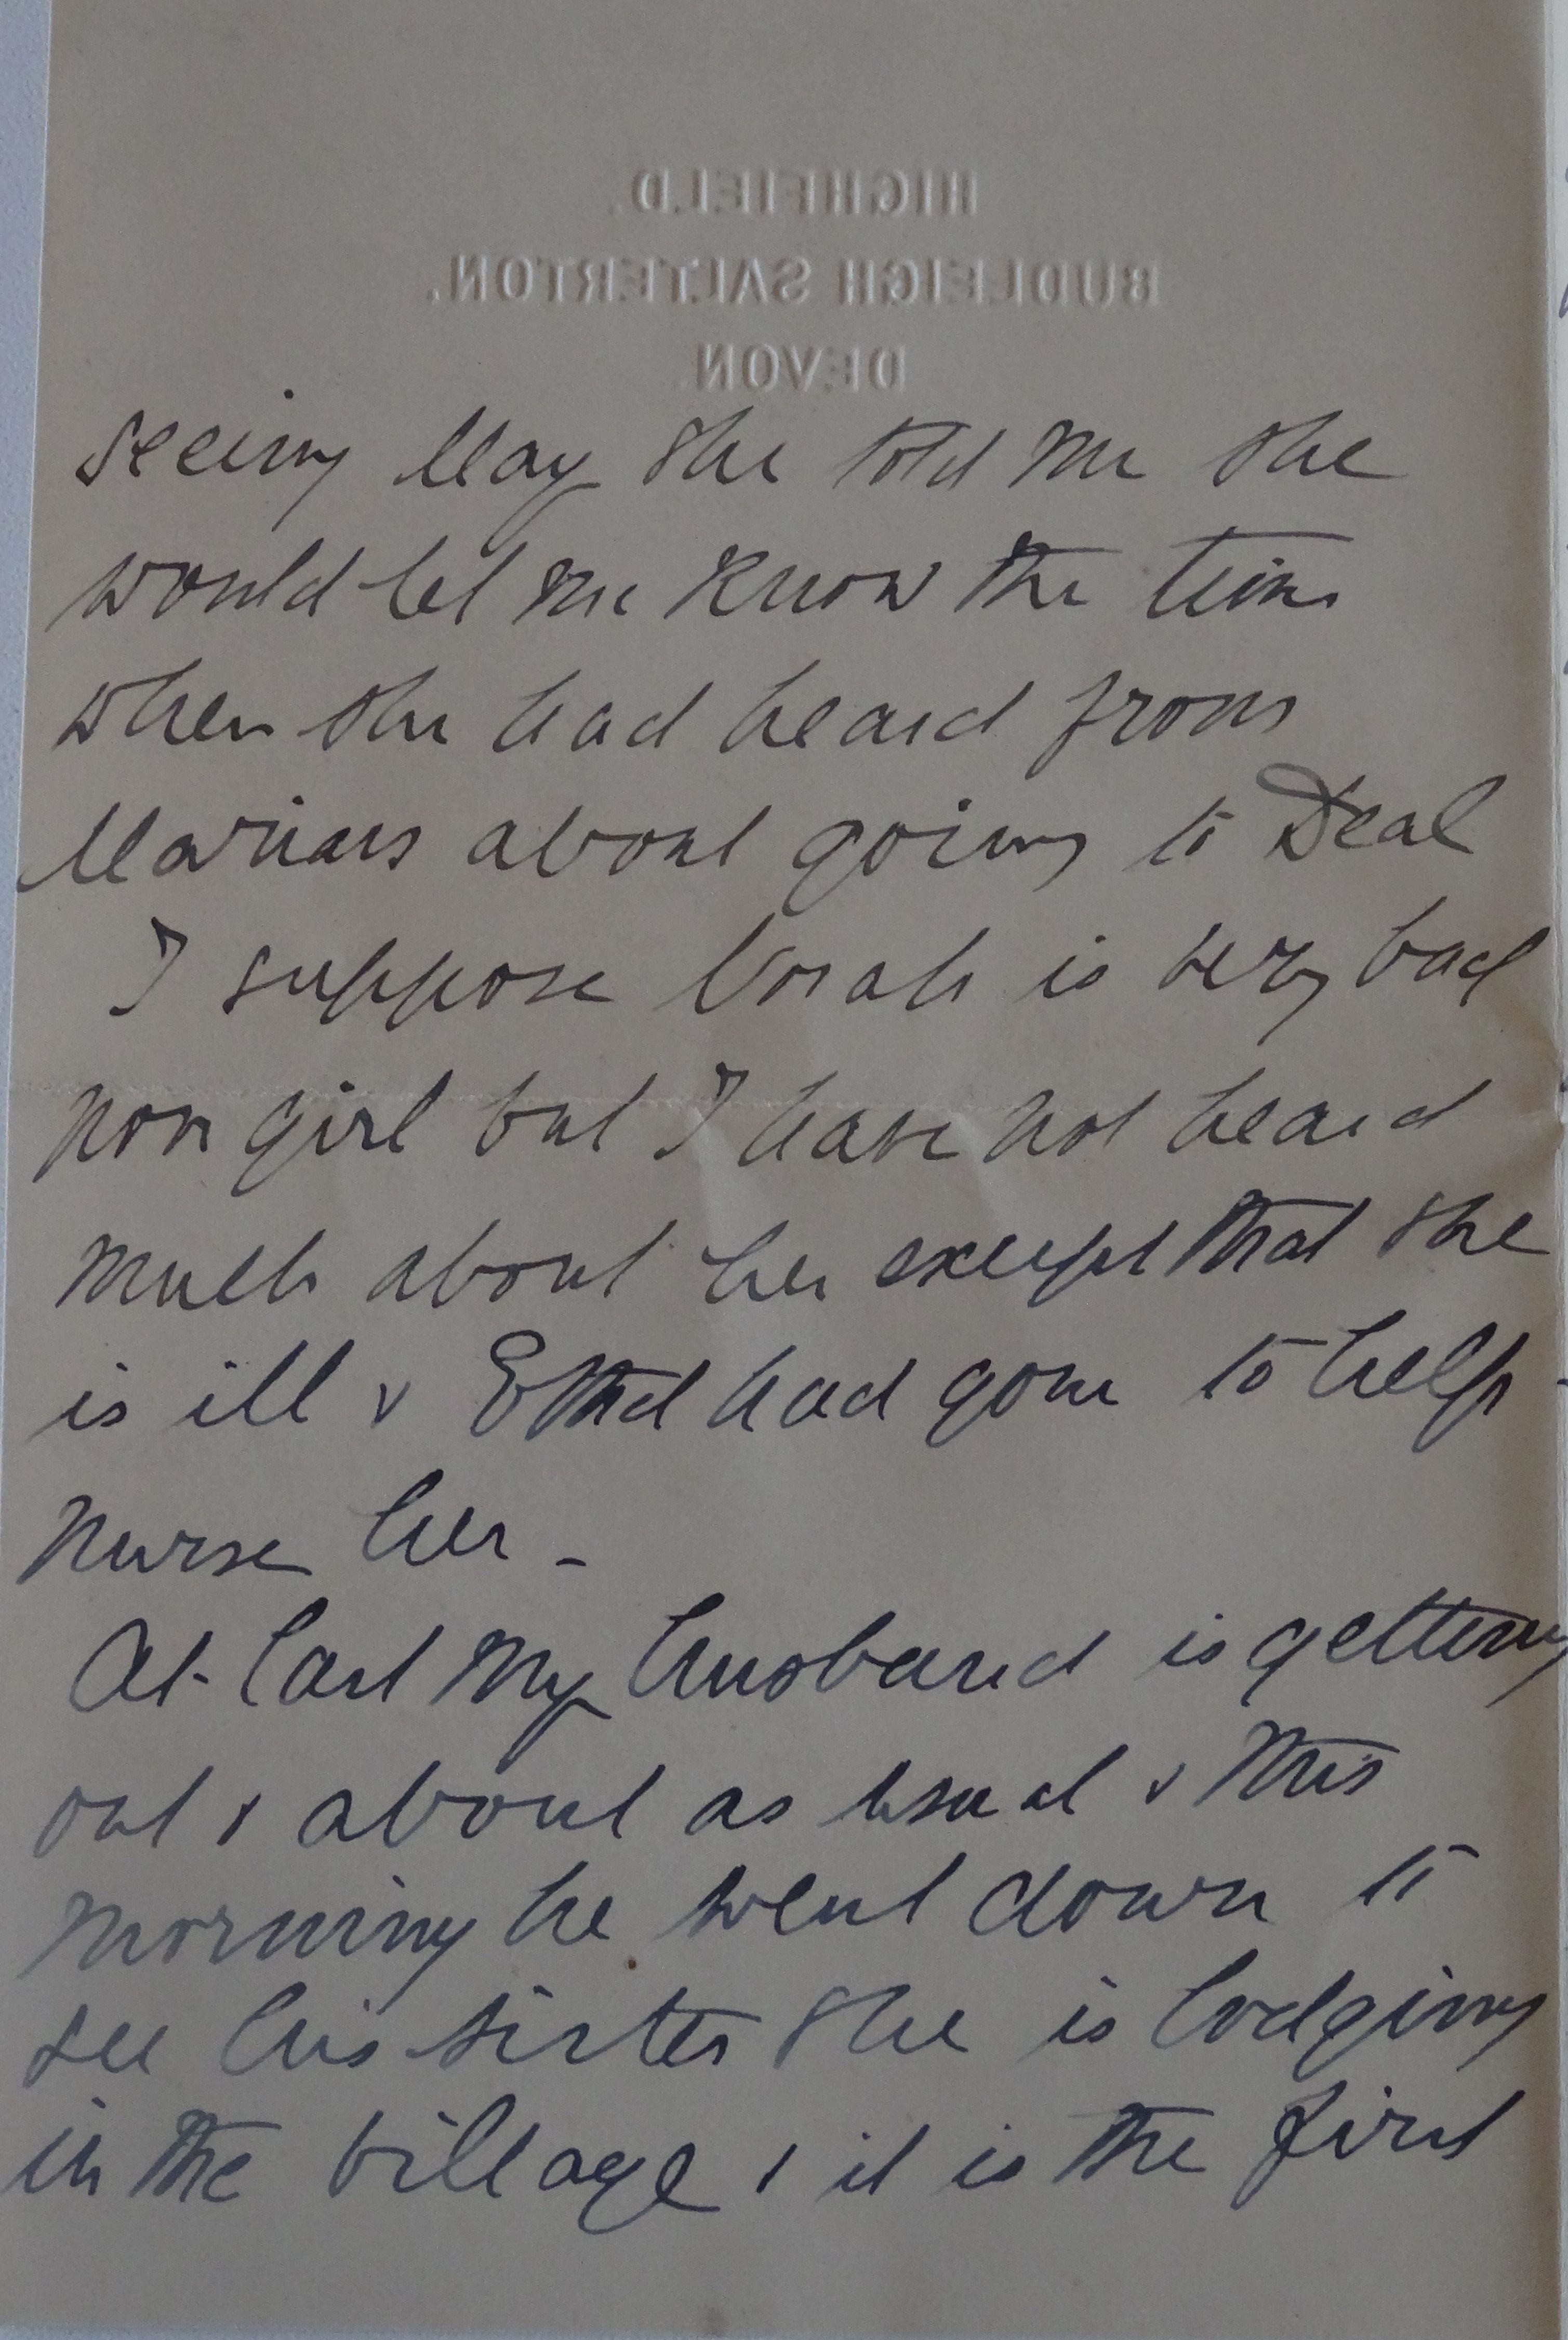 HIGHFIELD.
BUDLEIGH SALTERTON.
DEVON
seeing May she told me she
would let me know the time
when she had heard from
Marian about going to Deal
I suppose Norah is very bad
poor girl but I have not heard
much about her except that she
is ill & Ethel had gone to help
nurse her -
At last my husband is getting
out & about as usual & this
morning he went down to
see his sister she is lodging
in the village & it is the first